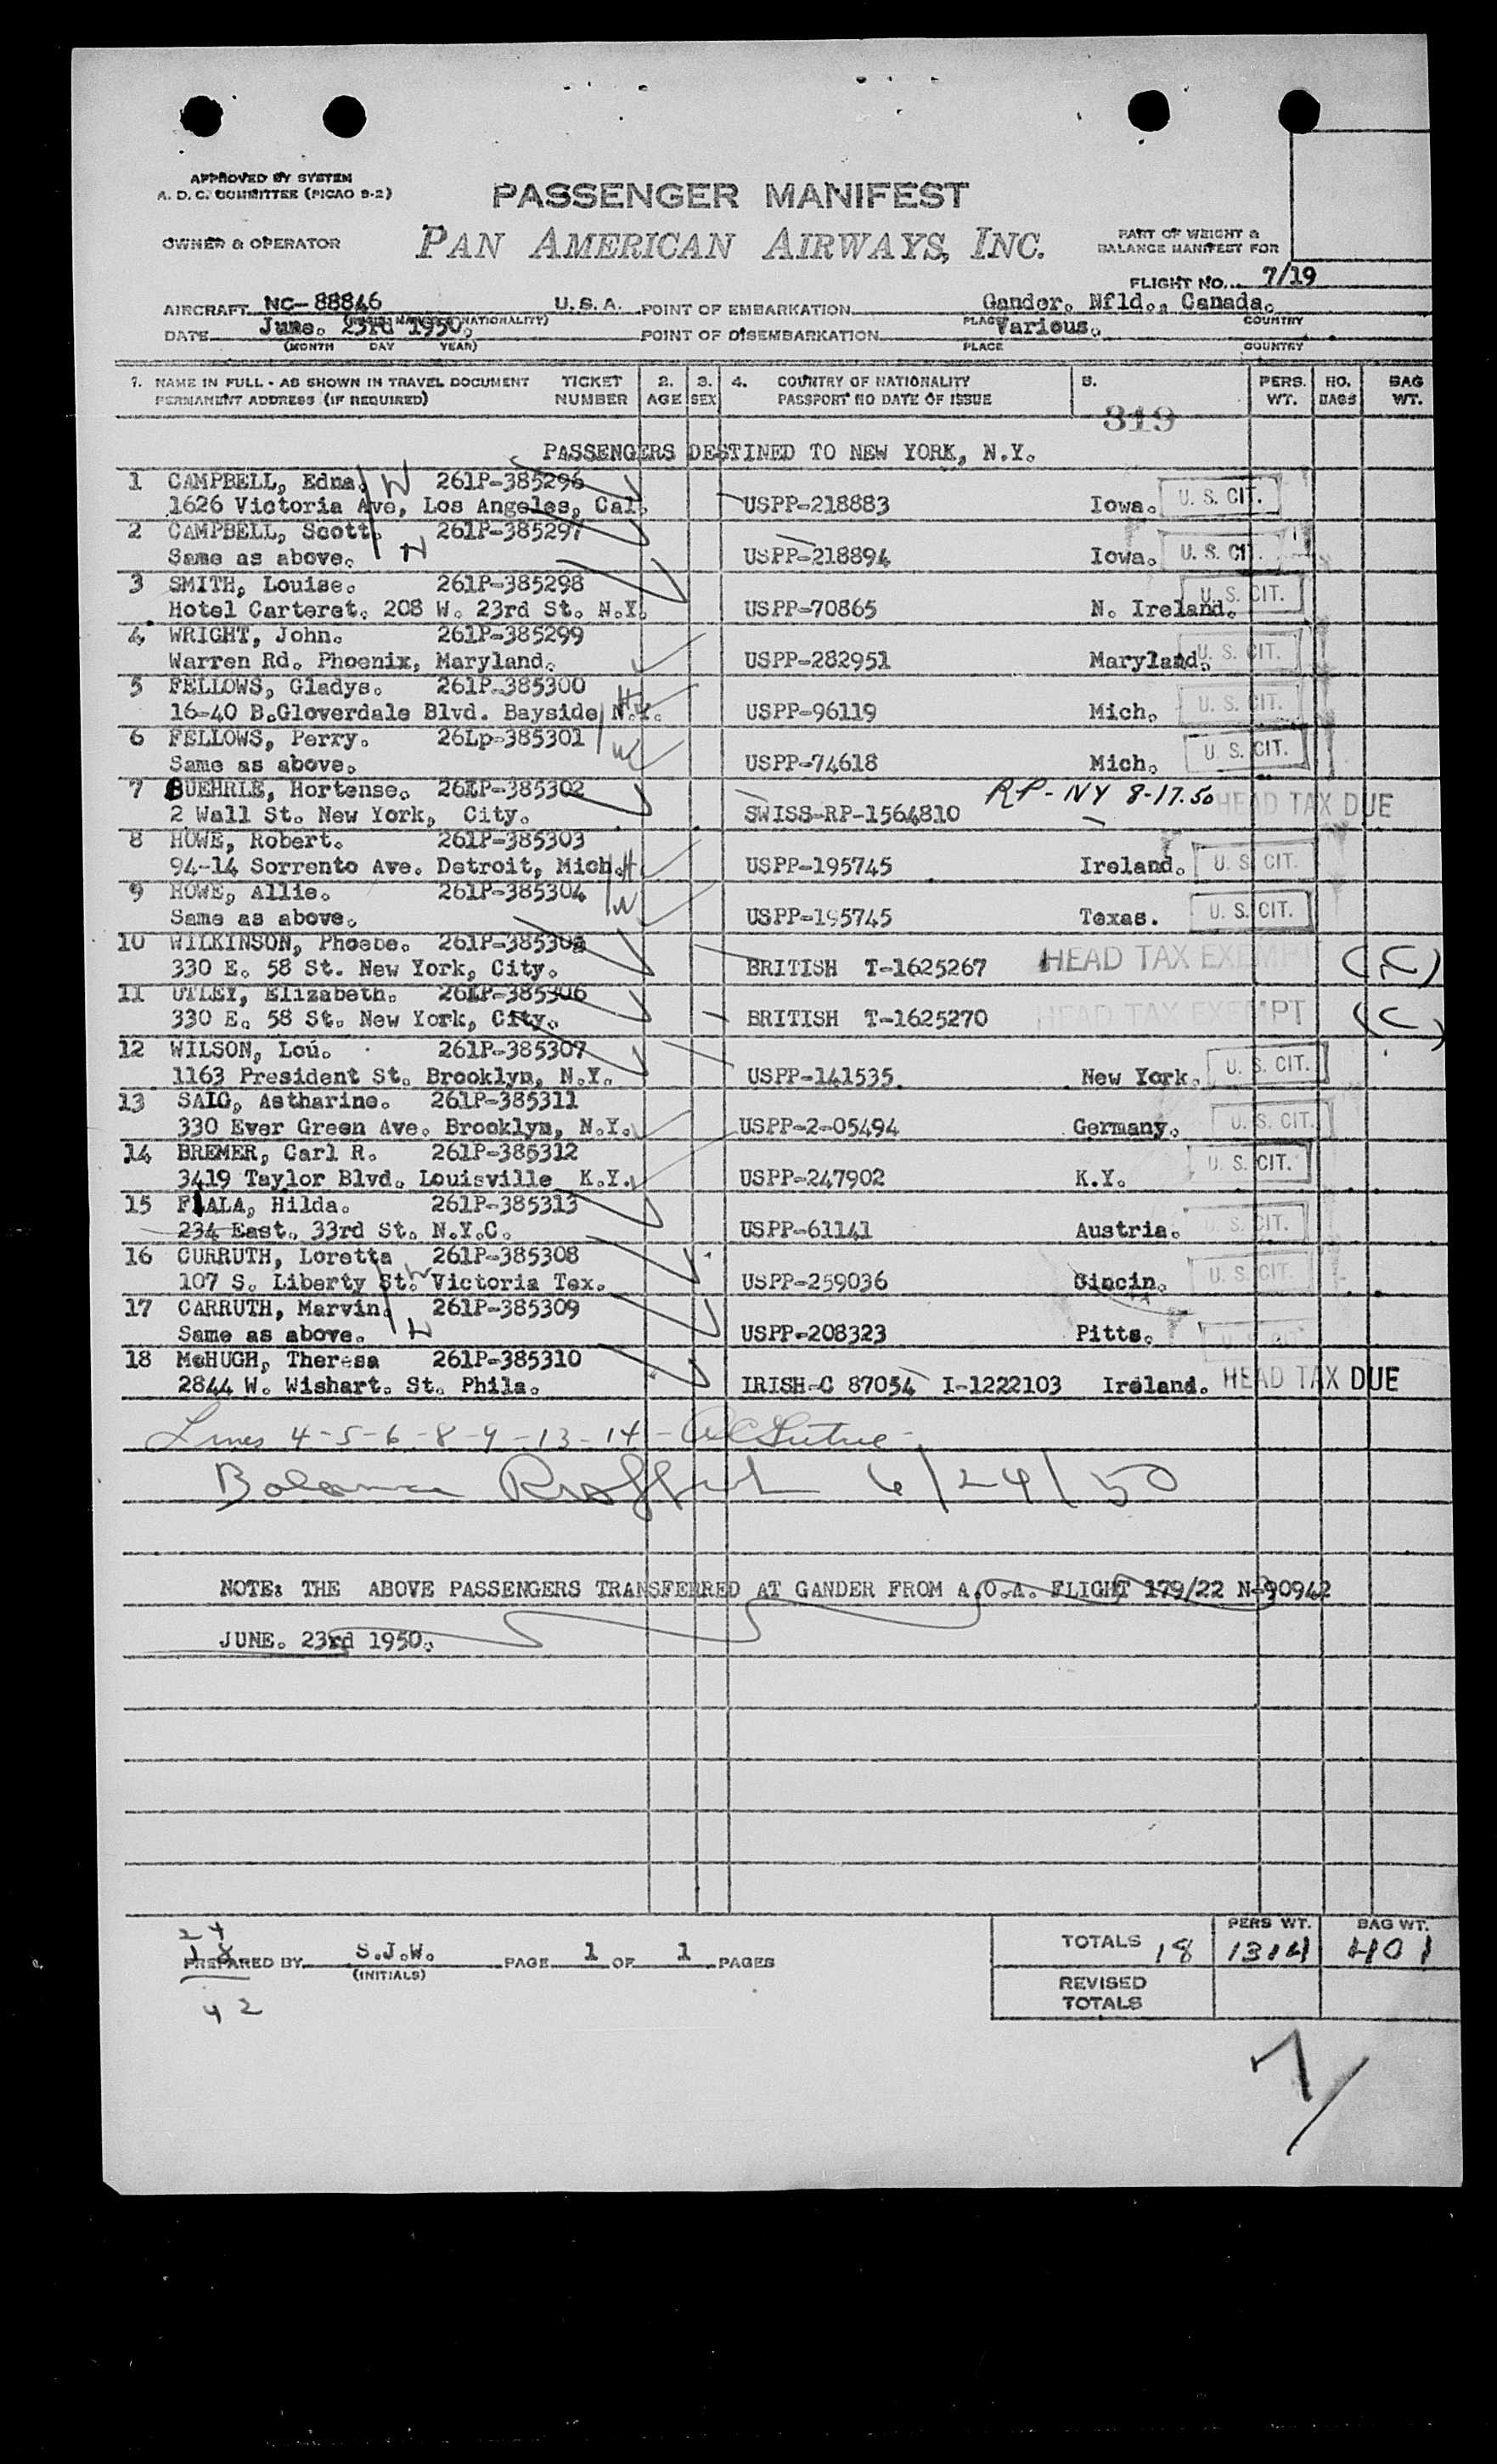 APPROVED BY SYSTEM
A. D. C. COMMITTEE (PICAO 9-2)
PASSENGER MANIFEST
OWNER & OPERATOR
PAN AMERICAN AIRWAYS, INC.
PART OF WEIGHT &
BALANCE MANIFEST FOR
FLIGHT NO. 7/19
AIRCRAFT NC-88846 U.S.A. POINT OF EMBARKATION Gander. Nfld., Canada.
PLACE COUNTRY
DATE June. 23rd 1950. POINT OF DISEMBARKATION Various.
(MONTH DAY YEAR) PLACE COUNTRY
1. NAME IN FULL - AS SHOWN IN TRAVEL DOCUMENT TICKET 2. 3. 4. COUNTRY OF NATIONALITY 5. PERS. NO. BAG
PERMANENT ADDRESS (IF REQUIRED) NUMBER AGE SEX PASSPORT NO DATE OF ISSUE WT. BAGS WT.
319
PASSENGERS DESTINED TO NEW YORK, N.Y.
1 CAMPBELL, Edna. W 261P-385296
1626 Victoria Ave, Los Angeles, Cal. USPP-218883 Iowa. U. S. CIT.
2 CAMPBELL, Scott. 261P-385297
Same as above. H USPP-218894 Iowa. U. S. CIT.
3 SMITH, Louise. 261P-385298
Hotel Carteret. 208 W. 23rd St. N.Y. USPP-70865 N. Ireland. U. S. CIT.
4. WRIGHT, John. 261P-385299
Warren Rd. Phoenix, Maryland. USPP-282951 Maryland. U. S. CIT.
5 FELLOWS, Gladys. 261P-385300
16-40 B.Gloverdale Blvd. Bayside N.Y. H USPP-96119 Mich. U. S. CIT.
6 FELLOWS, Perry. 26Lp-385301
Same as above. W USPP-74618 Mich. U. S. CIT.
7 BUEHRLE, Hortense. 261P-385302 RP-NY 8-17-50 HEAD TAX DUE
2 Wall St. New York, City. SWISS-RP-1564810
8 HOWE, Robert. 261P-385303
94-14 Sorrento Ave. Detroit, Mich. H USPP-195745 Ireland. U. S. CIT.
9 HOWE, Allie. 261P-385304
Same as above. W USPP-195745 Texas. U. S. CIT.
10 WILKINSON, Phoebe. 261P-385305
330 E. 58 St. New York, City. BRITISH T-1625267 HEAD TAX EXEMPT
11 UTLEY, Elizabeth. 261P-385306
330 E. 58 St. New York, City. BRITISH T-1625270 HEAD TAX EXEMPT
12 WILSON, Lou. 261P-385307
1163 President St. Brooklyn, N.Y. USPP-141535 New York. U. S. CIT.
13 SAIG, Astharine. 261P-385311
330 Ever Green Ave. Brooklyn, N.Y. USPP-2-05494 Germany. U. S. CIT.
14 BREMER, Carl R. 261P-385312
3419 Taylor Blvd. Louisville K.Y. USPP-247902 K.Y. U. S. CIT.
15 FIALA, Hilda. 261P-385313
234 East. 33rd St. N.Y.C. USPP-61141 Austria. U. S. CIT.
16 CURRUTH, Loretta 261P-385308
107 S. Liberty St. W Victoria Tex. USPP-259036 Cincin. U. S. CIT.
17 CARRUTH, Marvin. 261P-385309
Same as above. H USPP-208323 Pitts. U. S. CIT.
18 McHUGH, Theresa 261P-385310
2844 W. Wishart. St. Phila. IRISH-C 87054 I-1222103 Ireland. HEAD TAX DUE
Lines 4-5-6-8-9-13-14-
Balance 6/24/50
NOTE: THE ABOVE PASSENGERS TRANSFERRED AT GANDER FROM A.O.A. FLIGHT 179/22 N-90942
JUNE. 23rd 1950.
24
18
42
PREPARED BY S.J.W. PAGE 1 OF 1 PAGES
(INITIALS)
PERS WT. BAG WT.
TOTALS 18 1314 401
REVISED
TOTALS